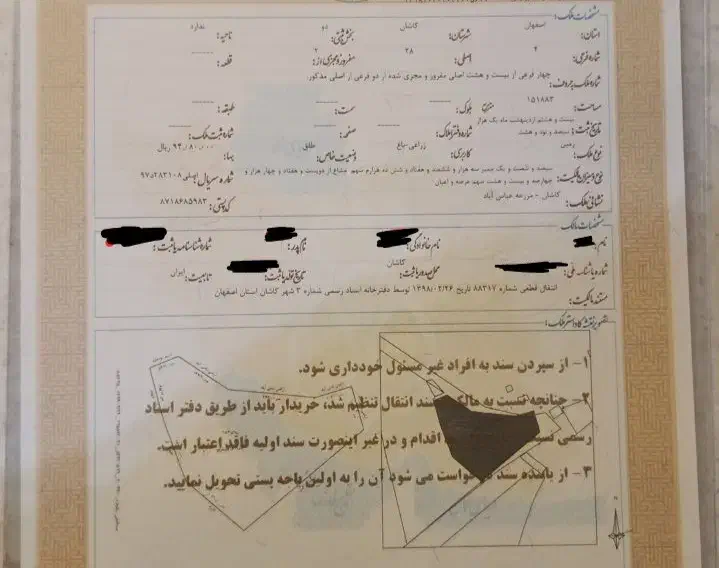 مشخصات ملک:
استان: اصفهان شهرستان: کاشان بخش ثبتی: دو ناحیه: ندارد
شماره فرعی: ۴ اصلی: ۲۸ مفروز و مجزی از: ۲ قطعه: ------
شماره ملک بحروف: چهار فرعی از بیست و هشت اصلی مفروز و مجزی شده از دو فرعی از اصلی مذکور.
مساحت: ۱۵۱۸۸۳ بلوک: ------ سمت: ------ طبقه: ------
تاریخ ثبت: بیست و هشتم اردیبهشت ماه یک هزار سیصد و نود و هشت شماره دفتر املاک: ------ صفحه: ------ شماره ثبت ملک: ------
نوع ملک: زمین کاربری: زراعی-باغ وضعیت خاص: طلق بها: ریال
نوع و میزان مالکیت: سیصد و شصت و یک ممیز سه هزار و ششصد و هفتاد و شش ده هزارم سهم مشاع از دویست و هفتاد و چهار هزار و چهارصد و بیست و هشت سهم عرصه و اعیان شماره سریال:
نشانی ملک: کاشان - مزرعه عباس آباد کدپستی: ۸۷۱۸۶۸۵۹۸۳
مشخصات مالک:
نام: نام خانوادگی: نام پدر: شماره شناسنامه یا ثبت:
شماره یا شناسه ملی: محل صدور یا ثبت: کاشان تاریخ تولد یا ثبت: تابعیت: ایران
مستند مالکیت: انتقال قطعی شماره ۸۸۳۱۷ تاریخ ۱۳۹۸/۰۲/۲۶ توسط دفترخانه اسناد رسمی شماره ۳ شهر کاشان استان اصفهان
تصویر نقشه کاداستر ملک:
۱- از سپردن سند به افراد غیر مسئول خودداری شود.
۲- چنانچه نسبت به مالک سند انتقال تنظیم شد، خریدار باید از طریق دفتر اسناد
رسمی اقدام و در غیر اینصورت سند اولیه فاقد اعتبار است.
۳- از یابنده سند درخواست می شود آن را به اولین باجه پستی تحویل نمایید.